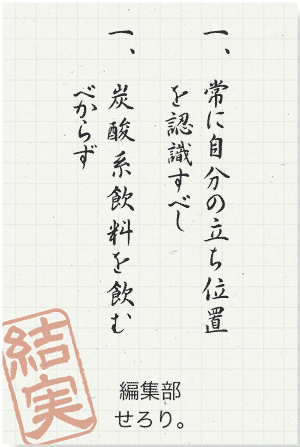 一、常に自分の立ち位置
を認識すべし
一、炭酸系飲料を飲む
べからず
編集部
せろり。
結実